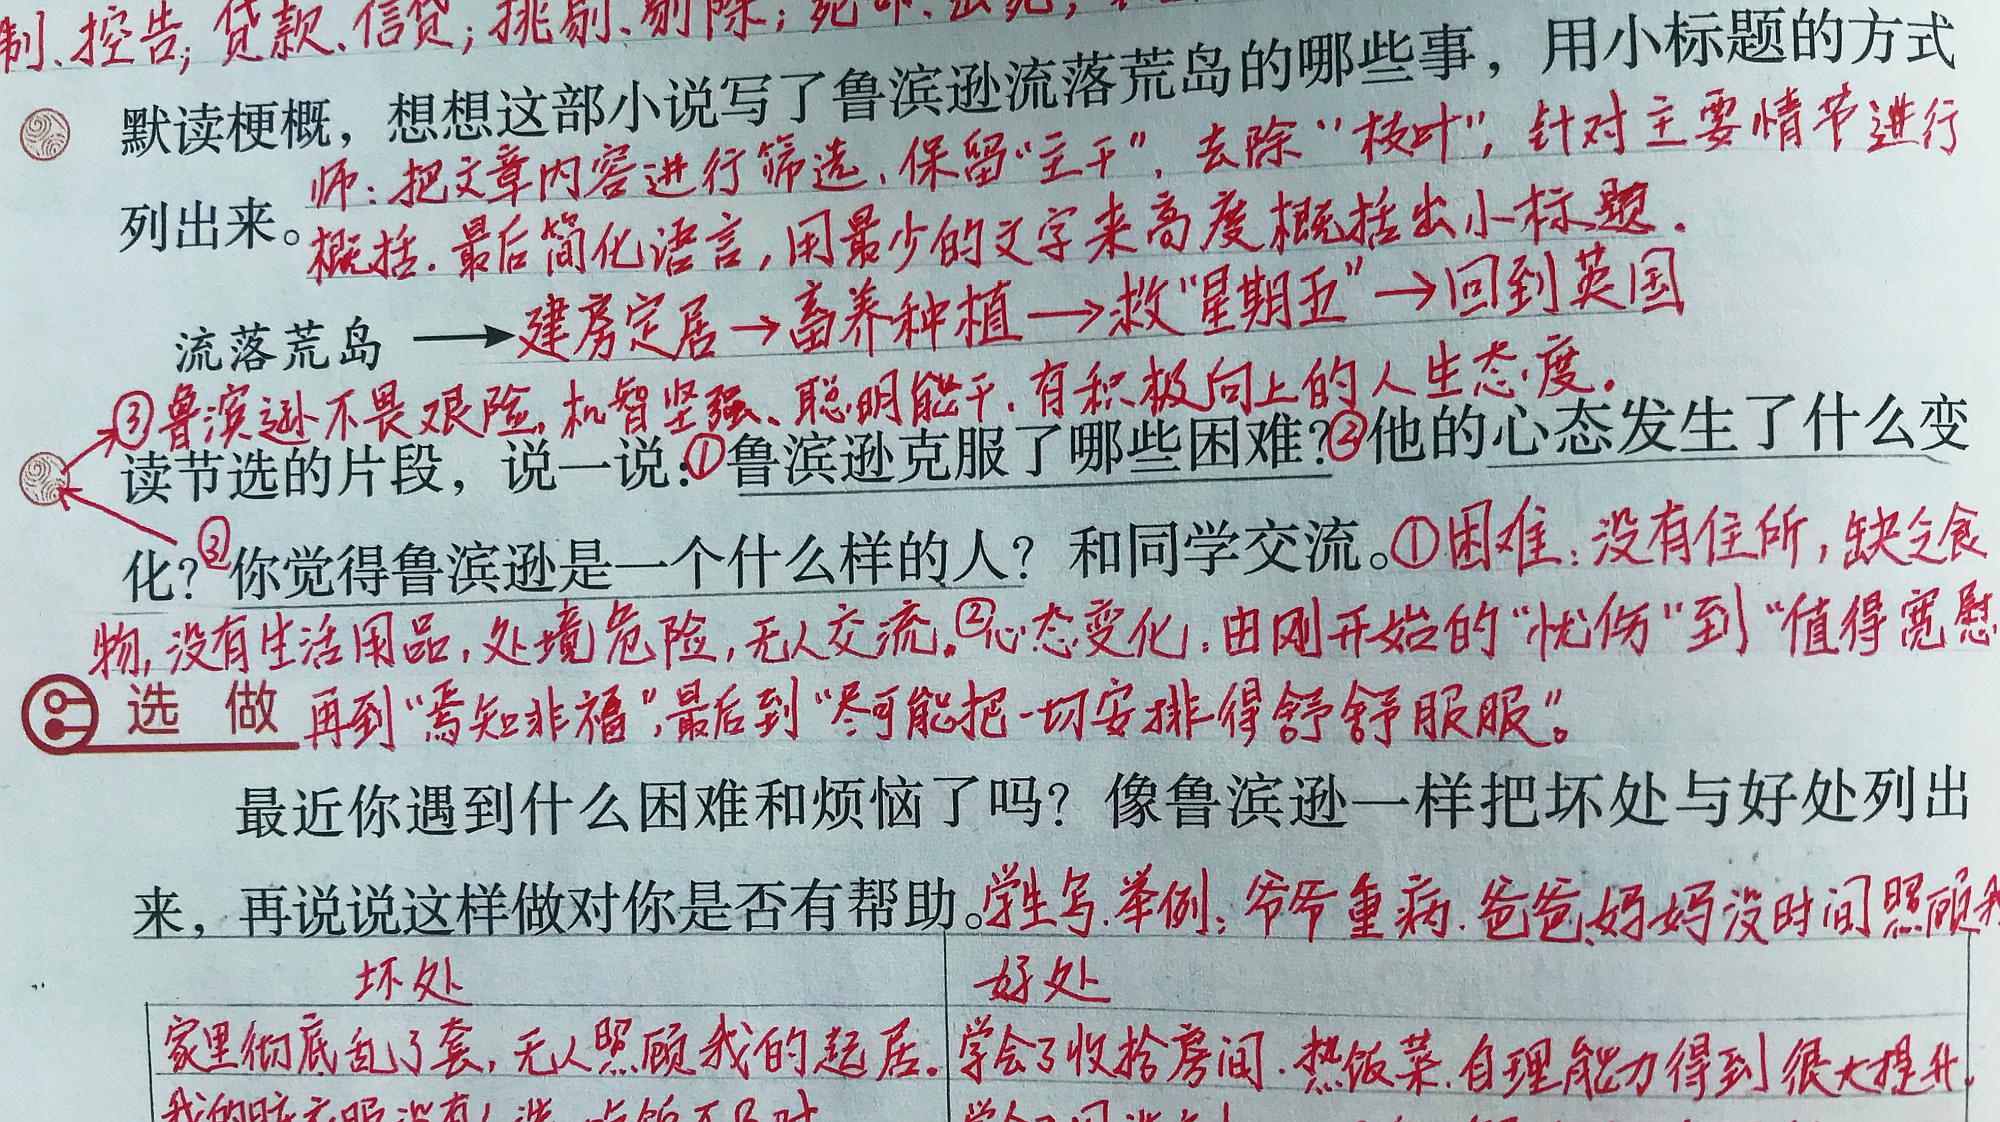 制、控告；贷款、信贷；挑剔、剔除；
默读梗概，想想这部小说写了鲁滨逊流落荒岛的哪些事，用小标题的方式
师：把文章内容进行筛选、保留“主干”，去除“枝叶”，针对主要情节进行
列出来。
概括。最后简化语言，用最少的文字来高度概括出小标题。
流落荒岛→建房定居→畜养种植→救“星期五”→回到英国
③鲁滨逊不畏艰险，机智坚强、聪明能干，有积极向上的人生态度。
读节选的片段，说一说：①鲁滨逊克服了哪些困难？②他的心态发生了什么变
化？③你觉得鲁滨逊是一个什么样的人？和同学交流。①困难：没有住所，缺乏食
物，没有生活用品，处境危险，无人交流。②心态变化：由刚开始的“忧伤”到“值得宽慰
选做 再到“焉知非福”，最后到“尽可能把一切安排得舒舒服服”。
最近你遇到什么困难和烦恼了吗？像鲁滨逊一样把坏处与好处列出
来，再说说这样做对你是否有帮助。学生写.举例：爷爷重病，爸爸、妈妈没时间照顾我
坏处 好处
家里彻底乱了套，无人照顾我的起居。 学会了收拾房间、热饭菜，自理能力得到很大提升。